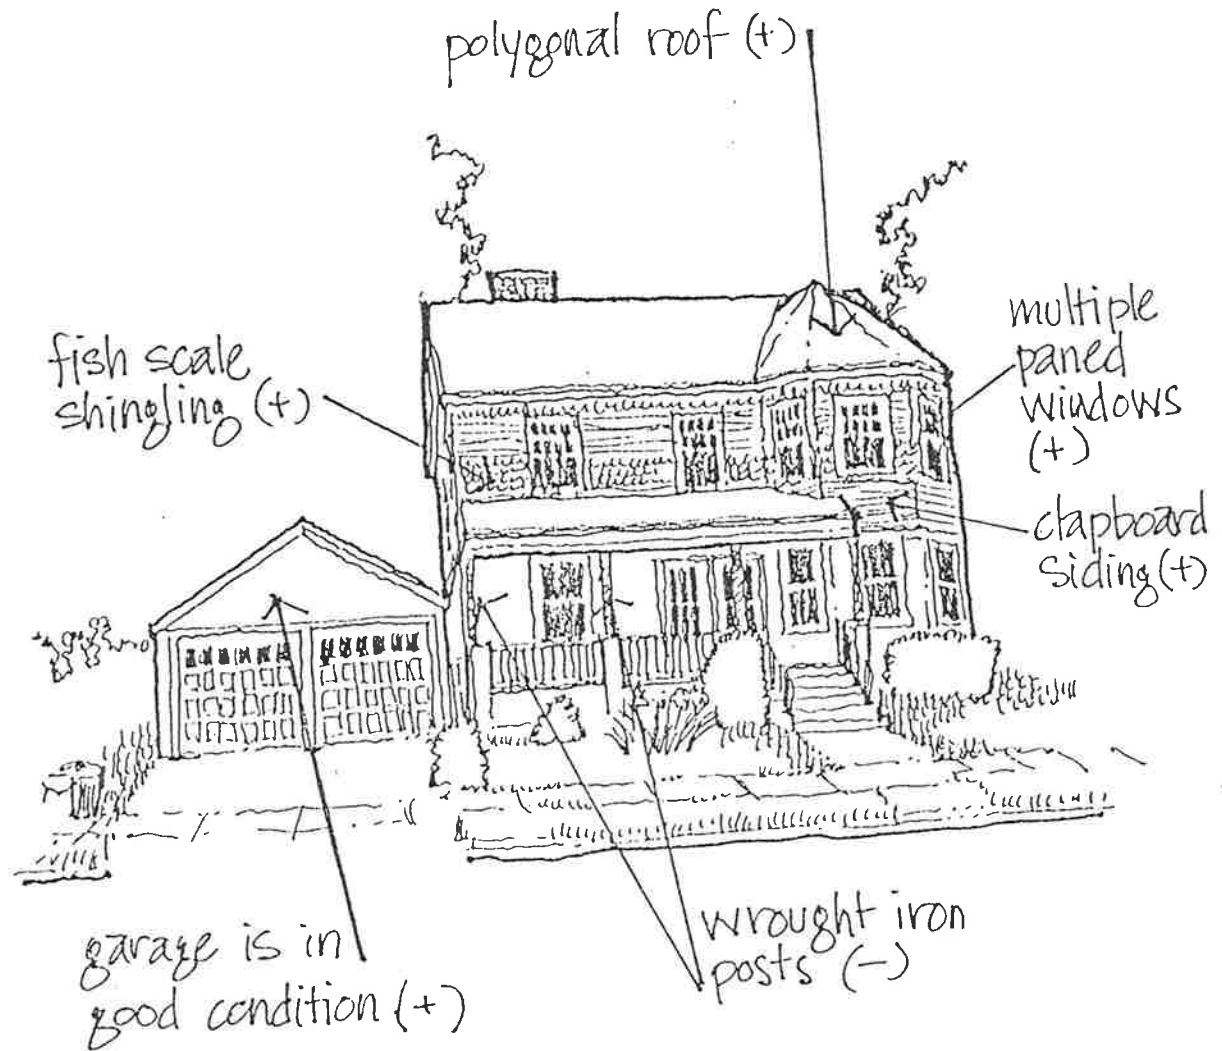 polygonal roof (+)
fish scale
shingling (+)
multiple
paned
windows
(+)
clapboard
siding (+)
garage is in
good condition (+)
wrought iron
posts (-)